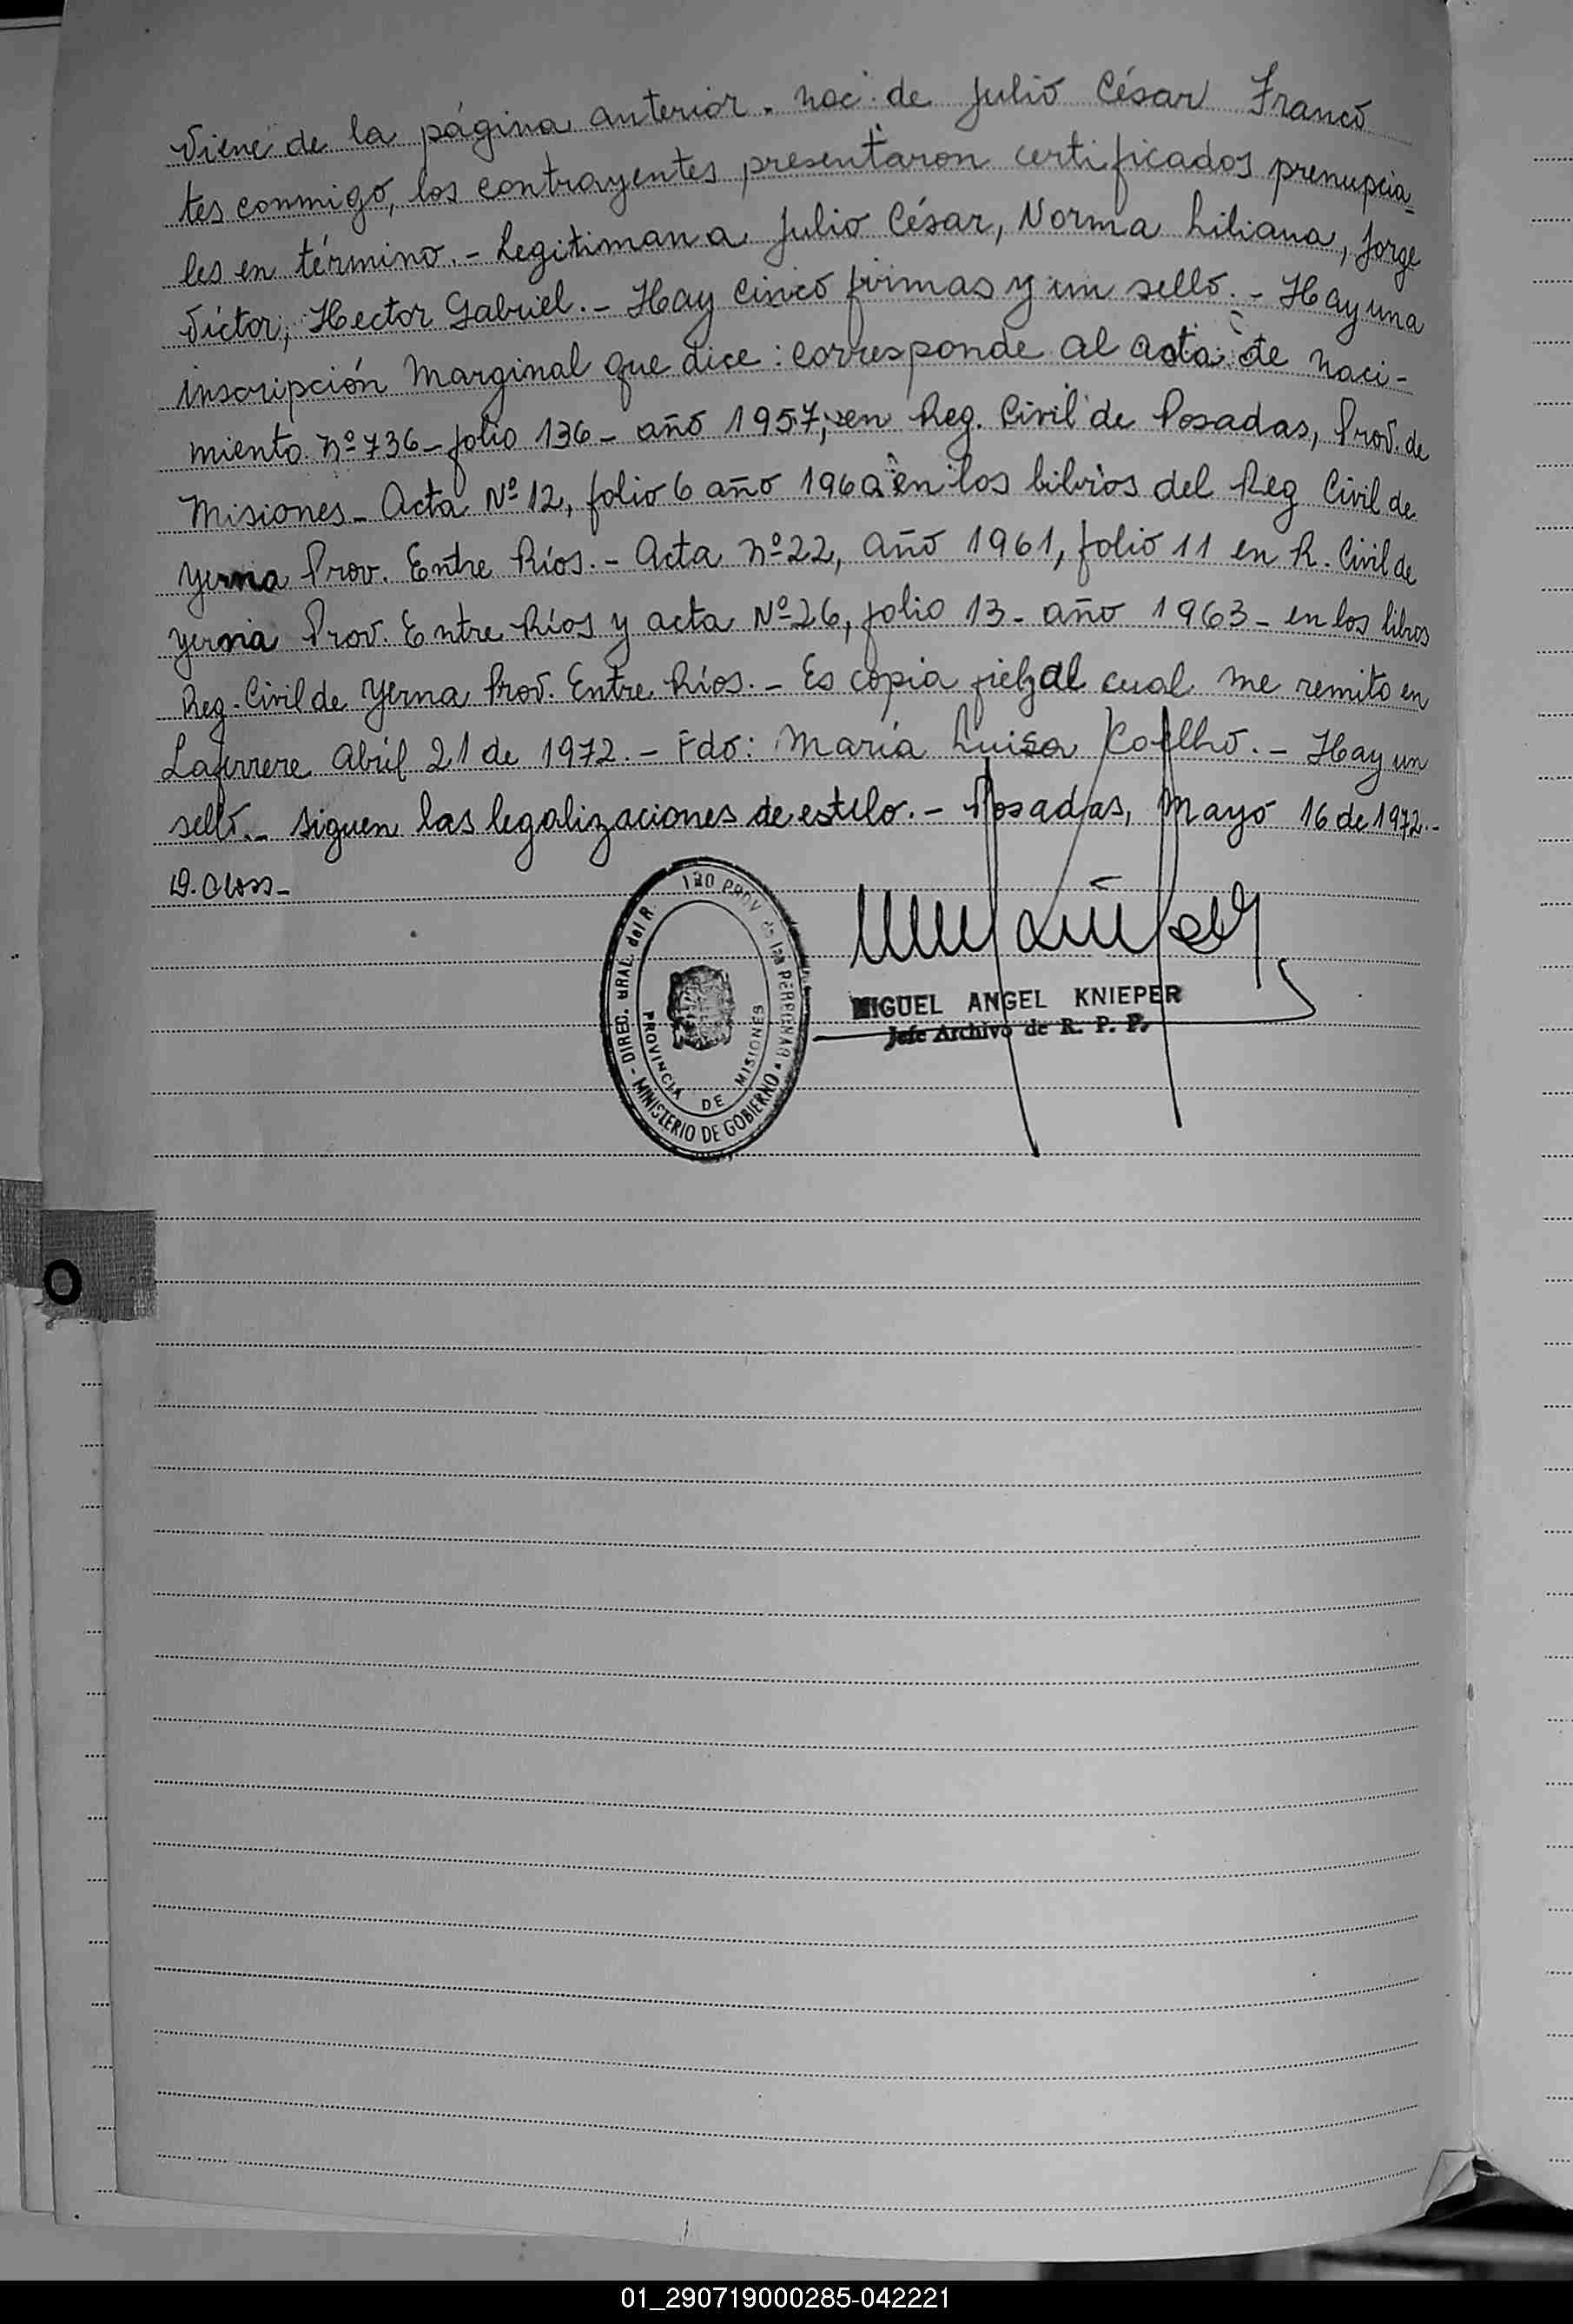 Viene de la página anterior. nac. de Julio César Franco
tes conmigo, los contrayentes presentaron certificados prenupcia_
les en término.- Legitiman a Julio César, Norma Liliana, Jorge
Víctor, Hector Gabriel.- Hay cinco firmas y un sello.- Hay una
inscripción Marginal que dice: corresponde al acta de naci-
miento nº 736- folio 136- año 1957, en Reg. Civil de Posadas, Prov. de
Misiones- Acta Nº 12, folio 6 año 1960 en los libros del Reg Civil de
Yerua Prov. Entre Ríos.- Acta nº 22, año 1961, folio 11 en R. Civil de
Yerua Prov. Entre Ríos y acta Nº 26, folio 13- año 1963- en los libros
Reg. Civil de Yerua Prov. Entre Ríos.- Es copia fiel al cual me remito en
Laferrere Abril 21 de 1972.- Fdo: María Luisa Koellho.- Hay un
sello.- siguen las legalizaciones de estilo.- Posadas, Mayo 16 de 1972.-
DIREC. GRAL. del R. PROV. de las PERSONAS
MINISTERIO DE GOBIERNO
PROVINCIA DE MISIONES
MIGUEL ANGEL KNIEPER
Jefe Archivo de R. P. P.
01_290719000285-042221